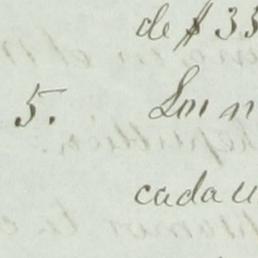 de $ 33
5. Los n
cada u